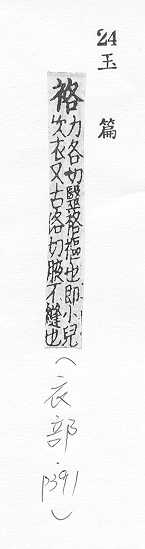 24
玉篇
袼
力各切繄袼䙔也即小兒
次衣又古洛切腋不縫也
(衣部.p391)